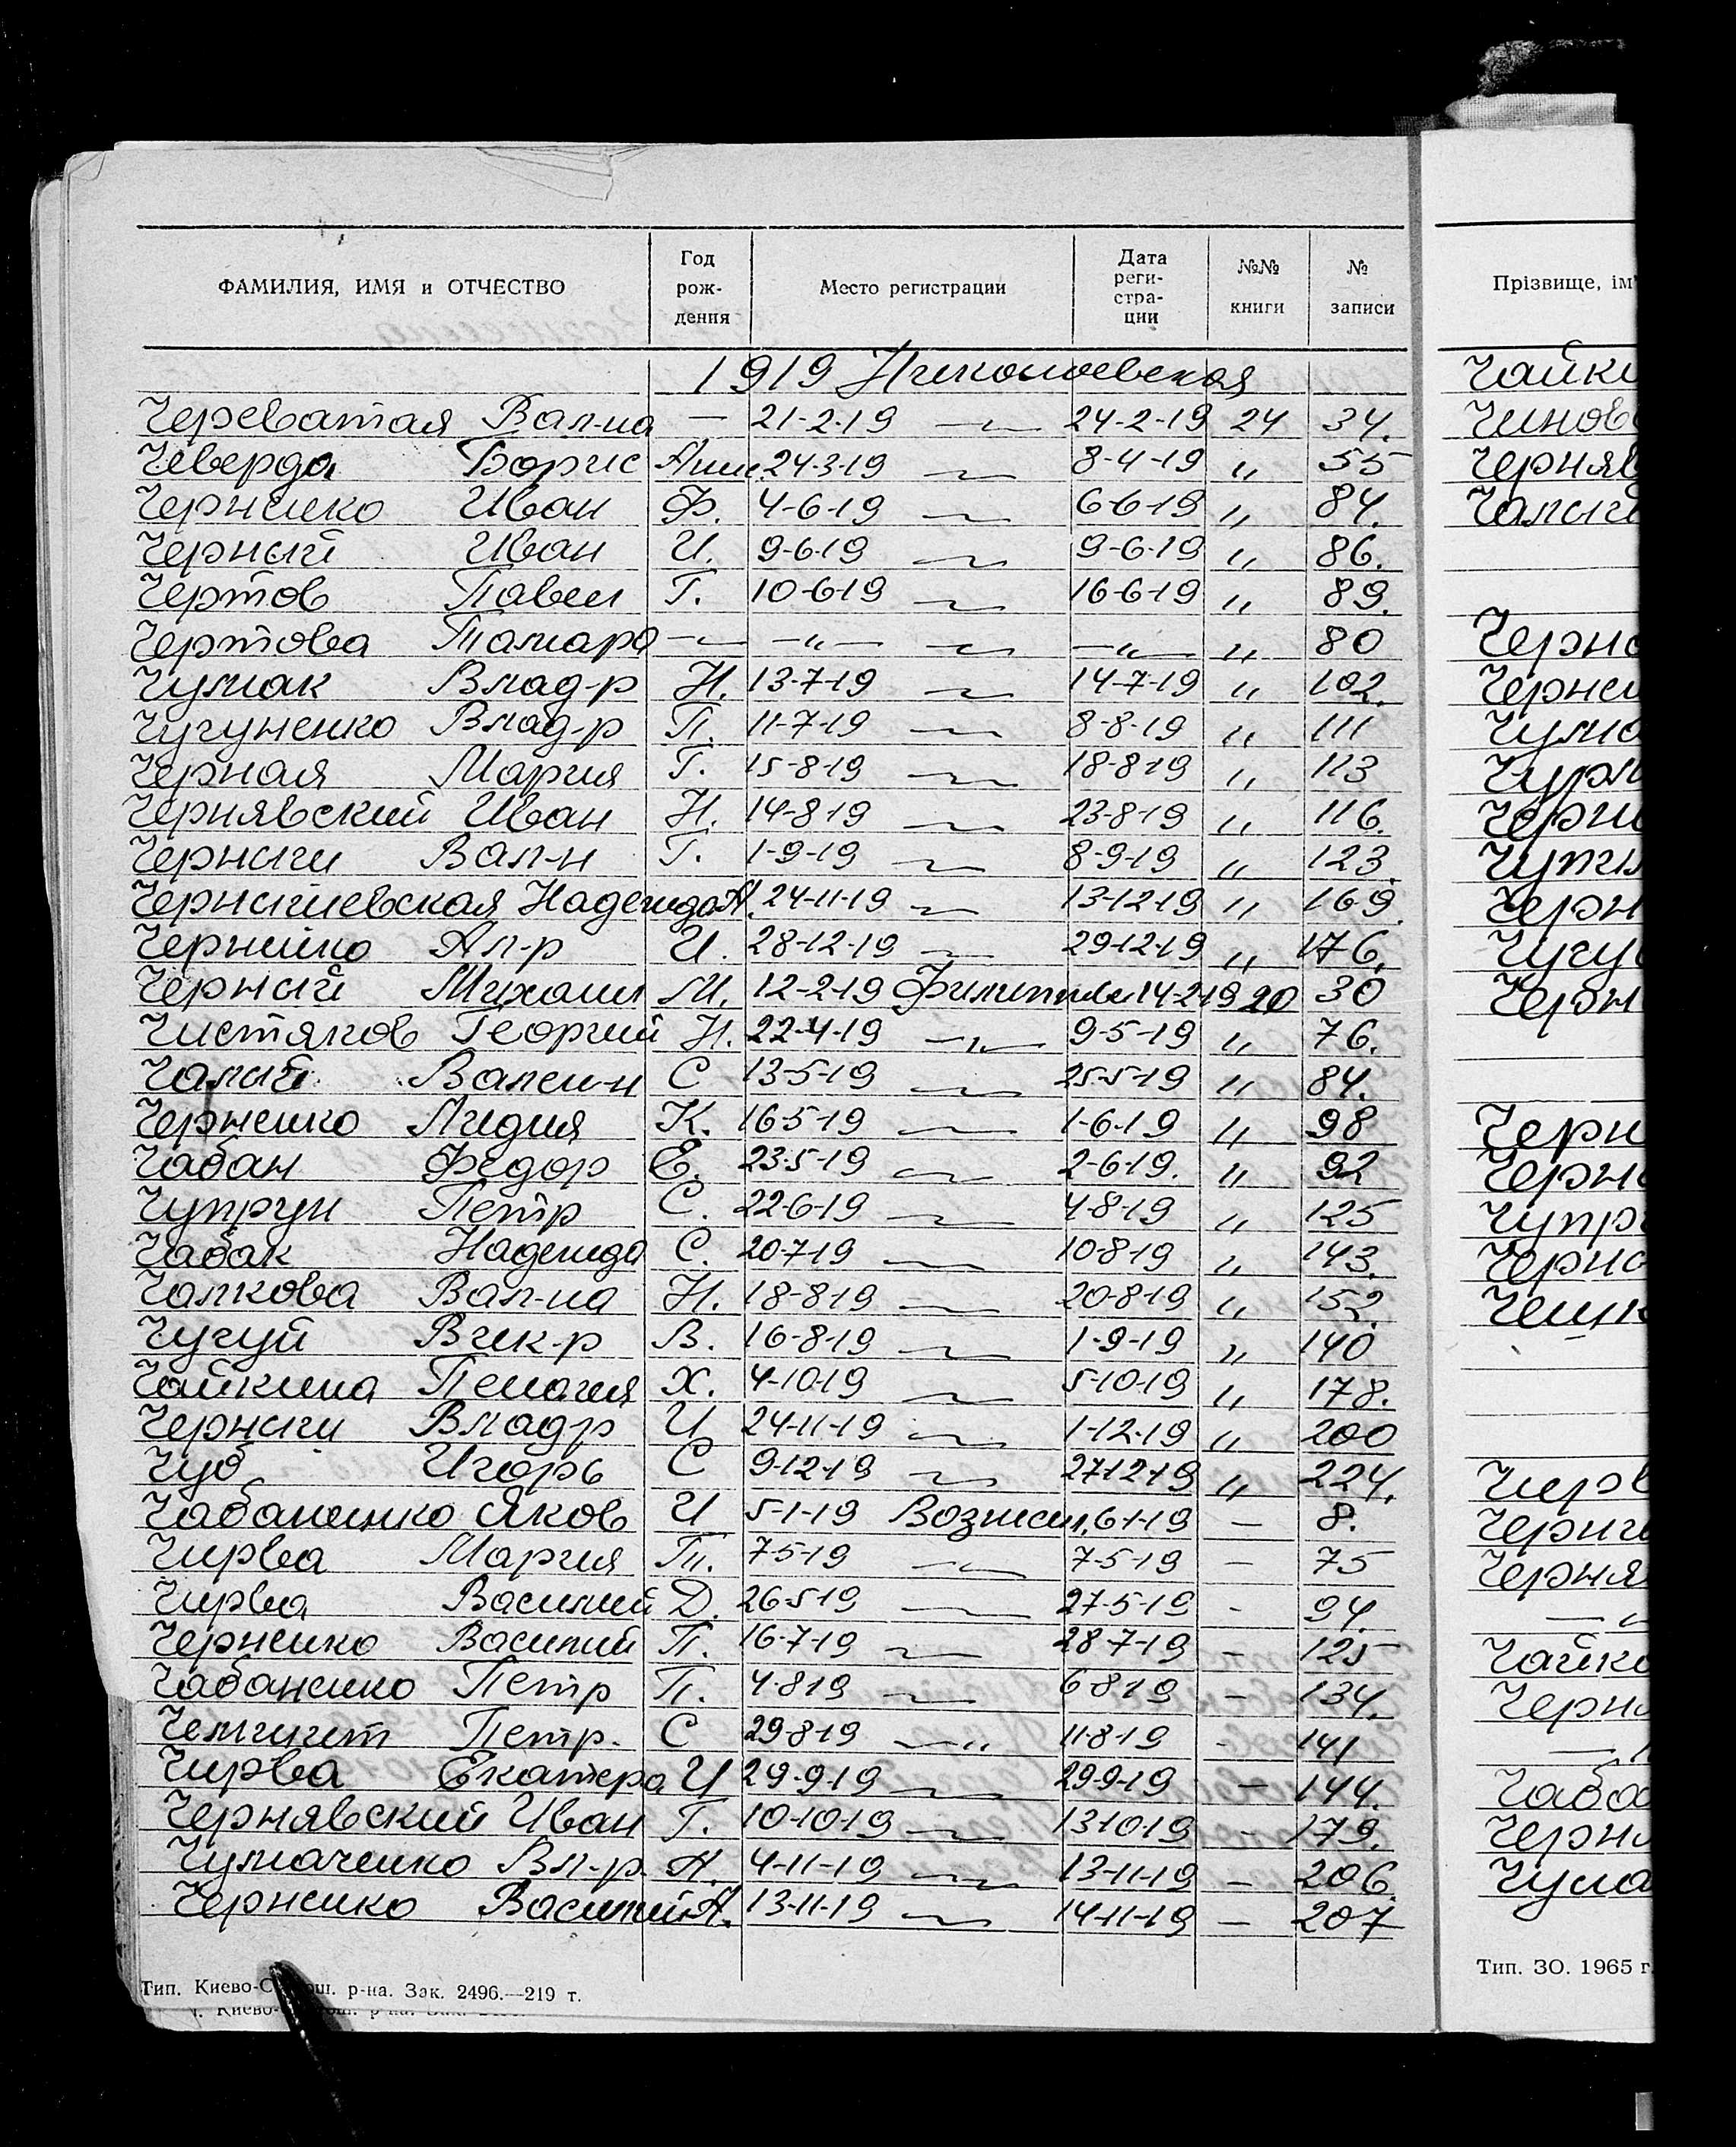 ФАМИЛИЯ, ИМЯ и ОТЧЕСТВО Год рож- дения Место регистрации Дата реги- стра- ции №№ книги № записи
1919 Николаевская
Череватая Вал-на — 21-2-19 —〃— 24-2-19 24 34.
Чеверда Борис 24-3-19 —〃— 8-4-19 〃 55
Черненко Иван Ф. 4-6-19 —〃— 6-6-19 〃 84.
Черный Иван И. 9-6-19 —〃— 9-6-19 〃 86.
Чертов Павел Г. 10-6-19 —〃— 16-6-19 〃 89.
Чертова Тамара —〃— —〃— —〃— —〃— 〃 80
Чумак Влад-р Н. 13-7-19 —〃— 14-7-19 〃 102.
Чугуненко Влад-р П. 11-7-19 —〃— 8-8-19 〃 111
Черная Мария Г. 15-8-19 —〃— 18-8-19 〃 113
Чернявский Иван Н. 14-8-19 —〃— 23-8-19 〃 116.
Черный Вал-н Г. 1-9-19 —〃— 8-9-19 〃 123.
Чернышевская Надежда А. 24-11-19 —〃— 13-12-19 〃 169.
Черненко Ал-р И. 28-12-19 —〃— 29-12-19 〃 176.
Черный Михаил М. 12-2-19 14-2-19 20 30
Чистяков Георгий Н. 22-4-19 —〃— 9-5-19 〃 76.
Чалый Вален-н С 13-5-19 —〃— 25-5-19 〃 84.
Черненко Лидия К. 16-5-19 —〃— 1-6-19 〃 98
Чабан Федор Е. 23-5-19 —〃— 2-6-19. 〃 92
Чупрун Петр С. 22-6-19 —〃— 4-8-19 〃 125
Чабак Надежда С. 20-7-19 —〃— 10-8-19 〃 143.
Чалкова Вал-на Н. 18-8-19 —〃— 20-8-19 〃 152.
Чугуй Вик-р В. 16-8-19 —〃— 1-9-19 〃 140
Чайкина Пелагия Х. 4-10-19 —〃— 5-10-19 〃 178.
Черный Влад-р И 24-11-19 —〃— 1-12-19 〃 200
Чуб Игорь С 9-12-19 —〃— 27-12-19 〃 224.
Чабаненко Яков И 5-1-19 Вознесен. 6-1-19 — 8.
Чирва Мария Т. 7-5-19 —〃— 7-5-19 — 75
Чирва Василий Д. 26-5-19 —〃— 27-5-19 - 94.
Черненко Василий П. 16-7-19 —〃— 28-7-19 — 125
Чабаненко Петр П. 4-8-19 —〃— 6-8-19 — 134.
Петр. С 29-8-19 —〃— 11-8-19 - 141
Чирва Екатера И 29-9-19 —〃— 29-9-19 — 144.
Чернявский Иван Г. 10-10-19 —〃— 13-10-19 — 179.
Чумаченко Вл-р. А. 4-11-19 —〃— 13-11-19 — 206.
Черненко Василий А. 13-11-19 —〃— 14-11-19 — 207
Тип. Киево- р-на. Зак. 2496.—219 т.
Прізвище, ім'
Чайки
Чинов
Черняв
Чалый
Черн
Чума
Черн
Черн
Чупр
Черв
Черня
Чайк
Чаба
Черн
Чума
Тип. ЗО. 1965 г.